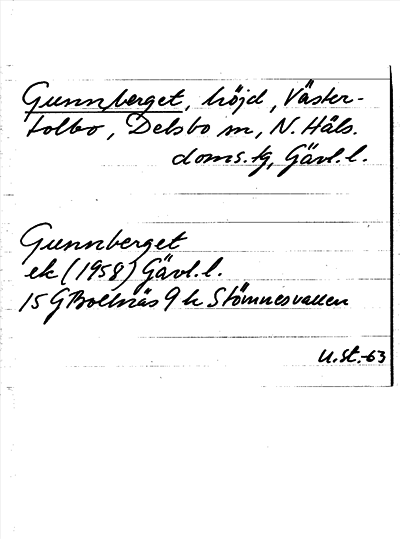 Gunnberget, höjd, Väster-
tolbo, Delsbo sn, N. Häls.
doms.tg, Gävl.l.
Gunnberget
ek (1958) Gävl.l.
15 G Bollnäs 9 h Stömnesvallen
U.St.-63